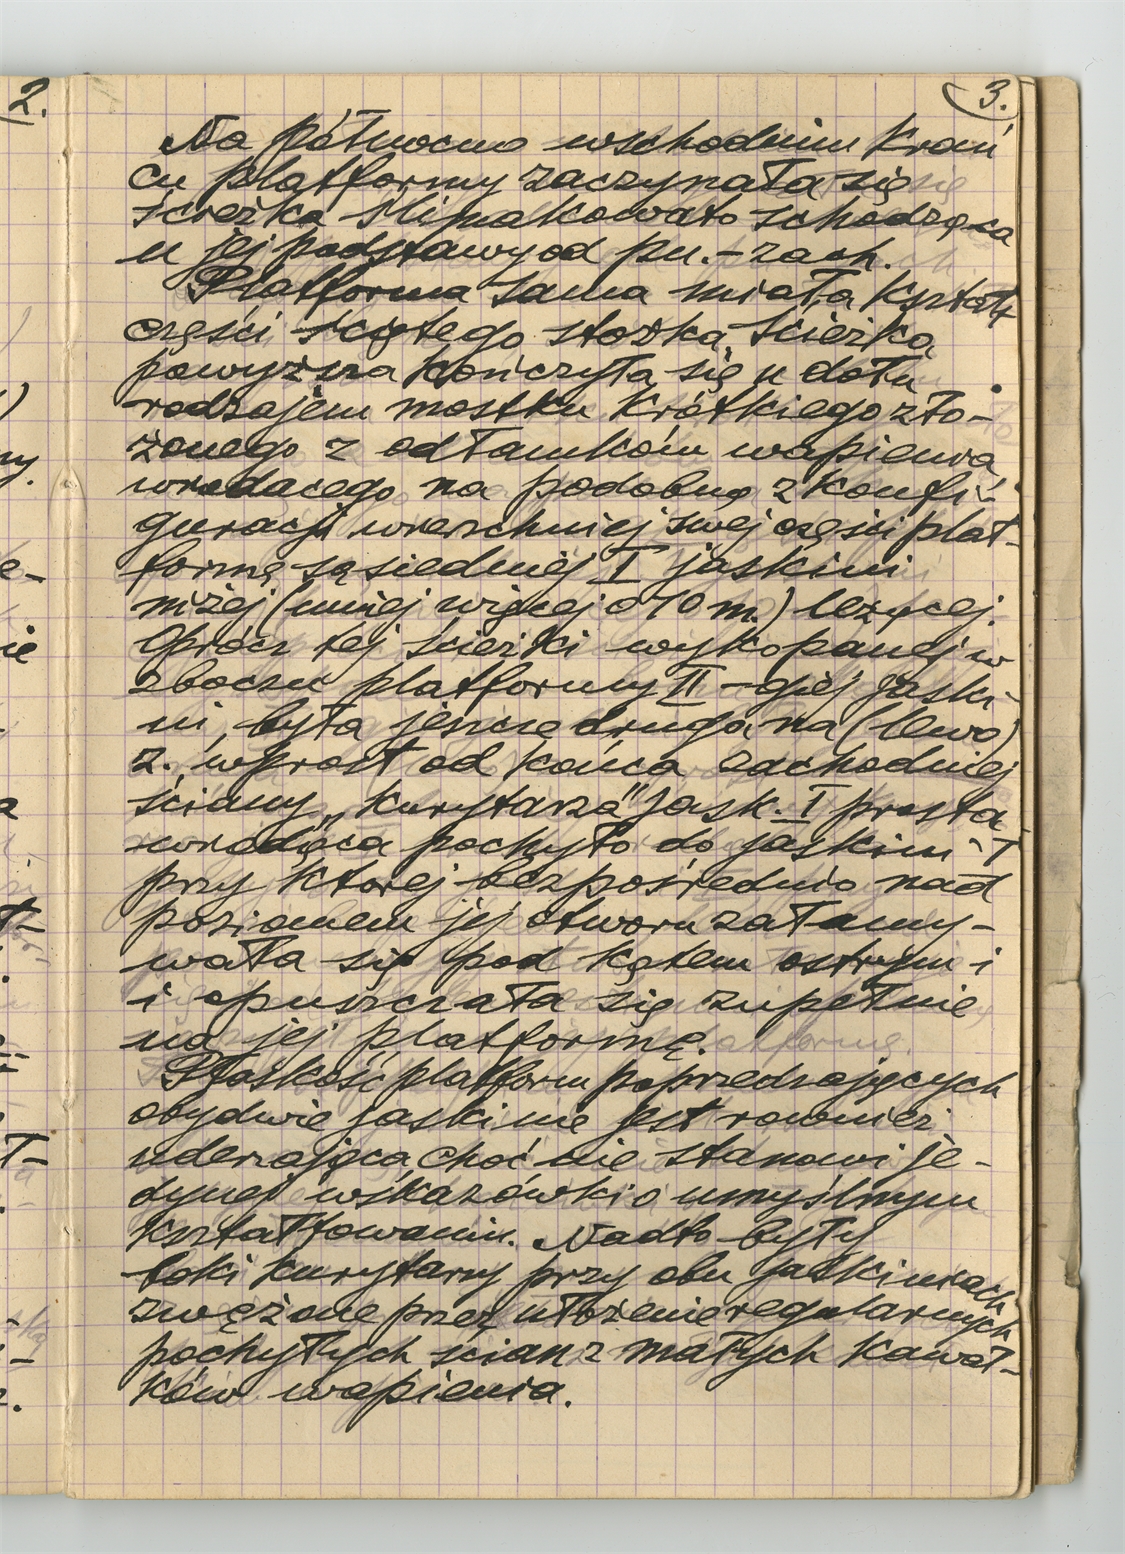 2.
3.
Na północno wschodnim krań
cu platformy zaczynała się
ścieżka ślimakowato schodząca
u jej podstawy od pn.-zach.
Platforma sama miała kształt
części ściętego stożka. Ścieżka
powyższa kończyła się u dołu
rodzajem mostku krótkiego zło-
żonego z odłamków wapienia
wiodącego na podobną z konfi-
guracji wierzchniej swej części plat-
formę sąsiedniej I jaskini
niżej (mniej więcej o 10 m.) leżącej.
Oprócz tej ścieżki wykopanej w
zboczu platformy II-giej jaski
ni, była jeszcze druga na (lewo)
z. wprost od końca zachodniej
ściany „kurytarza" jask. I prosta
wiodąca pochyło do jaskini I
przy której bezpośrednio nad
poziomem jej otworu załamy-
wała się pod kątem ostrym i
i opuszczała się zupełnie
na jej platformę.
Płaskość platform poprzedzających
obydwie jaskinie jest rownież
uderzająca choć nie stanowi je-
dynej wskazówki o umyślnym
kształtowaniu. Nadto były
boki kurytarzy przy obu jaskiniach
zwężone przez ułożenie regularnych
pochyłych ścian z małych kawał-
ków wapienia.